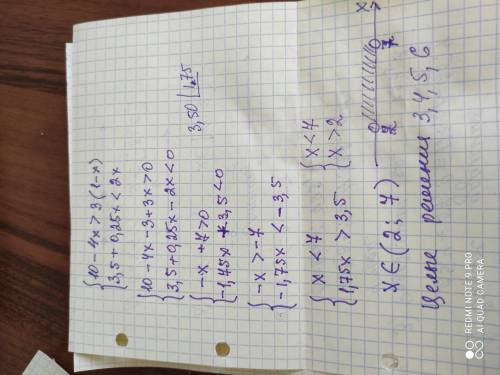 {10-4x>3(1-x)
{3,5+0,25x<2x
{10-4x-3+3x>0
{3,5+0,25x-2x<0
{-x+7>0
{-1,75x+3,5<0
3,50 | 1,75
{-x>-7
{-1,75x<-3,5
{x<7
{1,75x>3,5
{x<7
{x>2
x∈(2;7)
2 7 x
Целые решения 3,4,5,6
REDMI NOTE 9 PRO
AI QUAD CAMERA